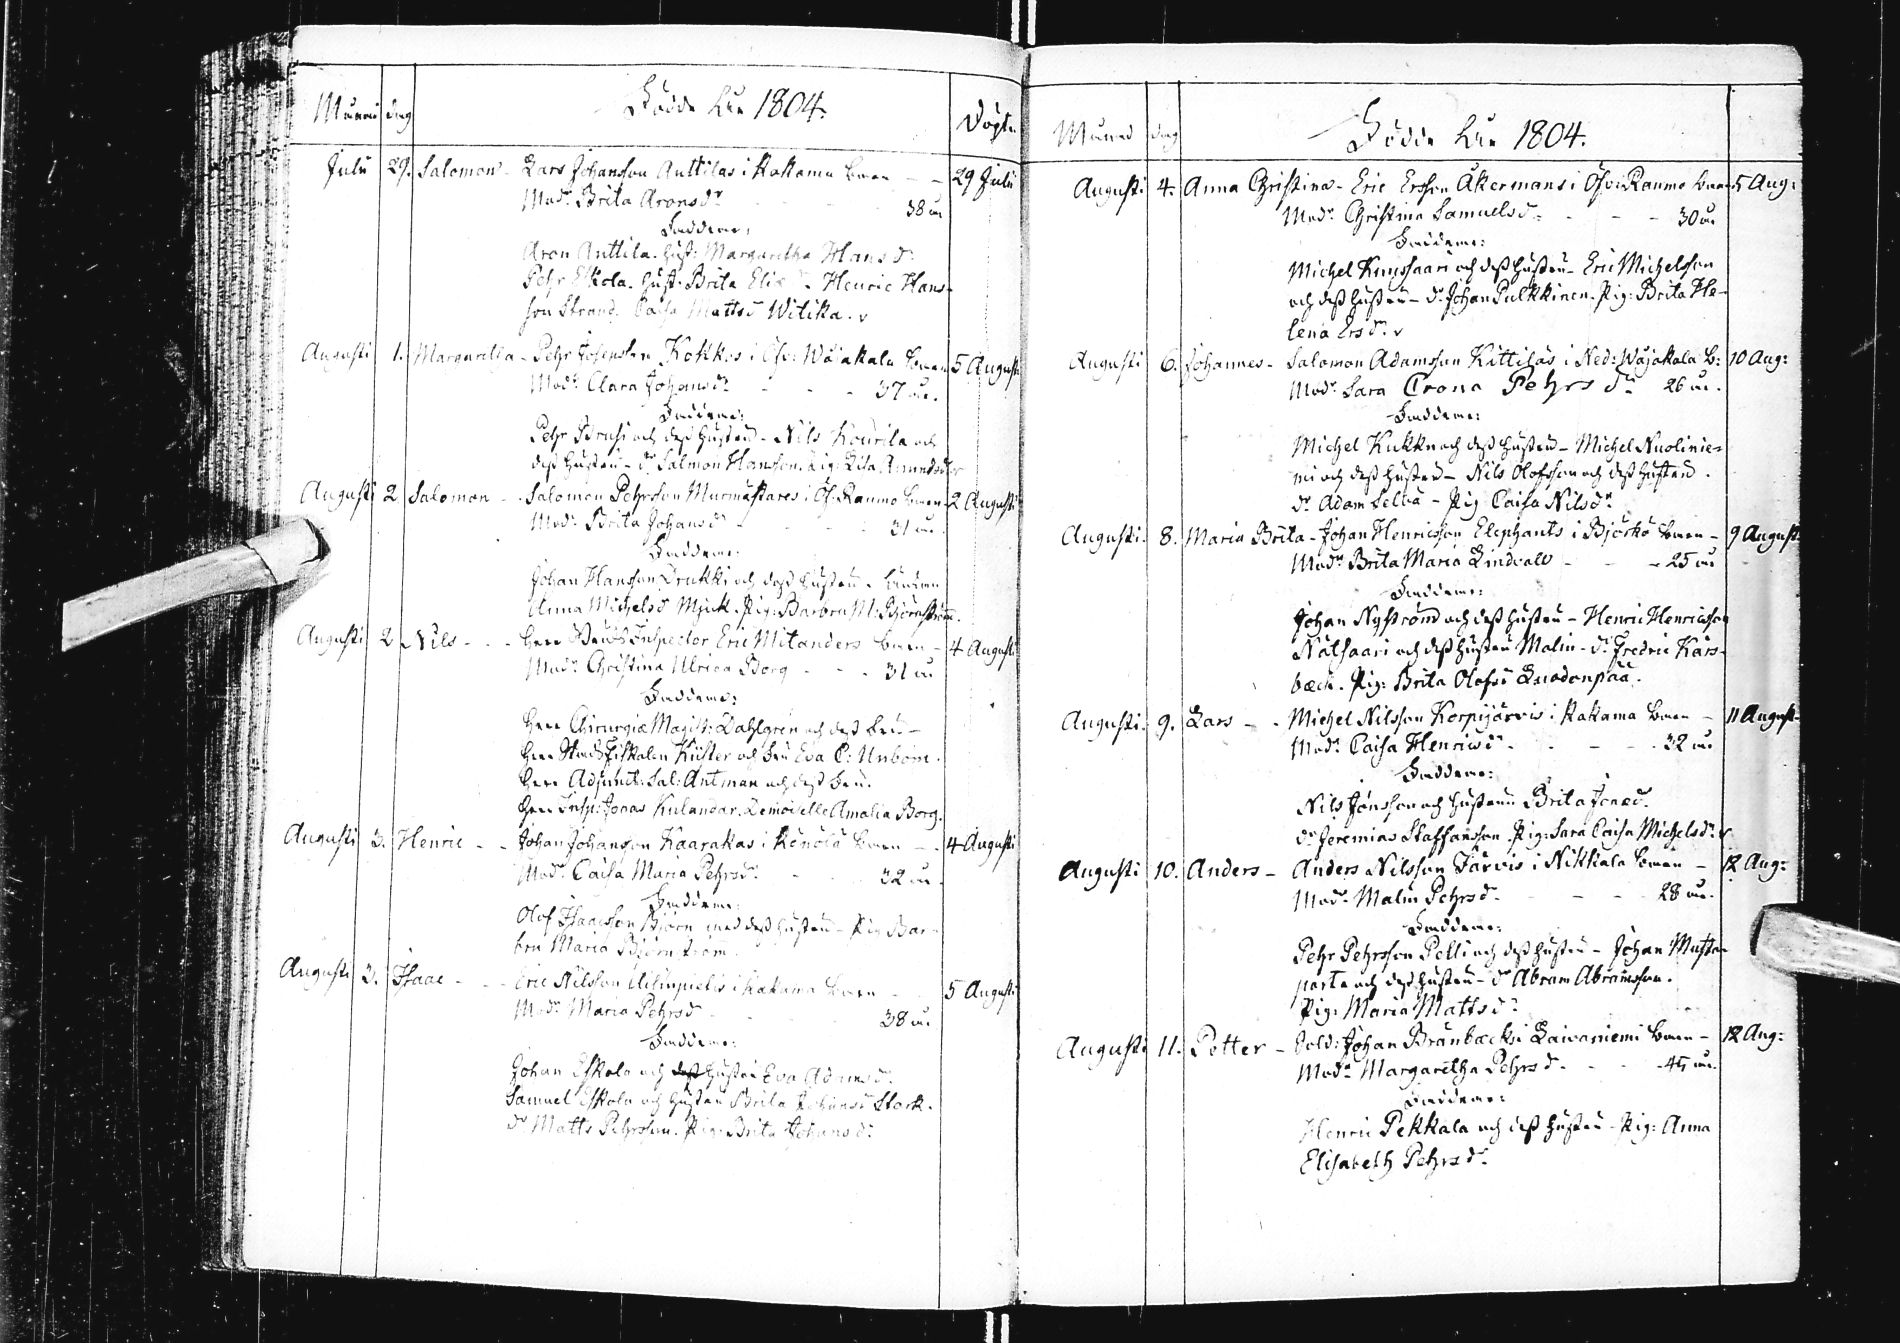 Månad dag Födde åhr 1804. Döpte
Julii 29. Salomon - Lars Johansson Anttilas i Kakama barn - - 29 Julii
Modr Brita Aronsdr - - - 38 år
Faddrar:
Aron Anttila. hust: Margaretha Hansdr
Pehr Eskola. hust. Brita Eliædr Henric Hans-
son Strand. Caisa Mattsd Witika.
Augusti 1. Margaretha - Pehr Josephson Kokkos i Öfv: Wojakala barn 5 Augusti
Modr Clara Johansdr - - - 37 år.
Faddrar:
Pehr och dess hustru - Nils Kourila och
dess hustru - dr Salmon Hansson. Pig:
Augusti 2 Salomon - Salomon Pehrsson Murmästares i Öf. Raumo barn 2 Augusti
Modr Brita Johansdr - - - 31 år.
Faddrar:
Johan Hansson Krukki och dess hustru -
Anna Michelsd Mjuk. Pig: Barbru M: Björnström.
Augusti 2 Nils - - Herr Inspector Eric Mitanders barn - 4 Augusti
Modr Christina Ulrica Borg - - 31 år
Faddrar:
Herr Chirurgiæ Magist: Dahlgren och dess fru -
Herr Stadsfiskalen Küster och fru Eva C: Unbom.
Herr Adjunct: Sal: Antman och dess fru.
Herr Insp: Jonas Kulander. Demoiselle Amalia Borg.
Augusti 3. Henric - - Johan Johansson Kaarakas i Könölä barn - 4 Augusti
Modr Caisa Maria Pehrsdr - - 32 år.
Faddrar:
Olof Isaacsson Björn med dess hustru - Pig Bar-
bru Maria Björnström.
Augusti 3. Isaac - - Eric Nilsson i Kakama barn - 5 Augusti
Modr Maria Pehrsdr - - 38 år.
Faddrar:
Johan Eskola och dess hustru Eva Adamsdr.
Samuel Eskola och hustru Brita Johansd Stork.
dr Matts Pehrsson. Pig: Brita Johansdr
Månad dag Födde åhr 1804.
Augusti 4. Anna Christina - Eric Ersson Åkermans i Öfv: Raumo barn 5 Aug:
Modr Christina Samuelsdr - - - 30 år
Faddrar:
Michel Knussaari och dess hustru - Eric Michelsson
och dess hustru - dr Johan Pulkkinen. Pig: Brita He-
lena Ersdr
Augusti 6. Johannes - Salomon Adamsson Kittiläs i Ned: Wojakala B: 10 Aug:
Modr Sara Crona Pehrsdr 26 år.
Faddrar:
Michel Kukko och dess hustru - Michel Nuolinie-
mi och dess hustru - Nils Olofsson och dess hustru.
dr Adam Selva - Pig Caisa Nilsdr
Augusti 8. Maria Brita - Johan Henricsson Elephants i Björkö barn - 9 Augusti
Modr Brita Maria Lindvall - - - 25 år
Faddrar:
Johan Nyström och dess hustru - Henric Henricsson
Nätsaari och dess hustru Malin - dr Fredric Kars-
bæck. Pig: Brita Olofsd Luodonpää.
Augusti 9. Lars - - Michel Nilsson Korpijärvis i Kakama barn - 11 Augusti
Modr Caisa Henricsdr - - - 32 år.
Faddrar:
Nils Jönsson och hustrun Brita Jonsd.
dr Jeremias Staffansson. Pig: Sara Caisa Michelsdr.
Augusti 10. Anders - Anders Nilsson Järvis i Nikkala barn - 12 Aug:
Modr Malin Pehrsdr - - - 28 år.
Faddrar:
Pehr Pehrsson Pelli och dess hustru - Johan Musta-
parta och dess hustru - dr Abram Abramsson.
Pig: Maria Mattsdr
Augusti 11. Petter - Sold: Johan Brånbæcks i Laivaniemi barn - 12 Aug:
Modr Margaretha Pehrsdr - - - 45 år.
Faddrar:
Henric Pekkala och dess hustru - Pig: Anna
Elisabeth Pehrsdr